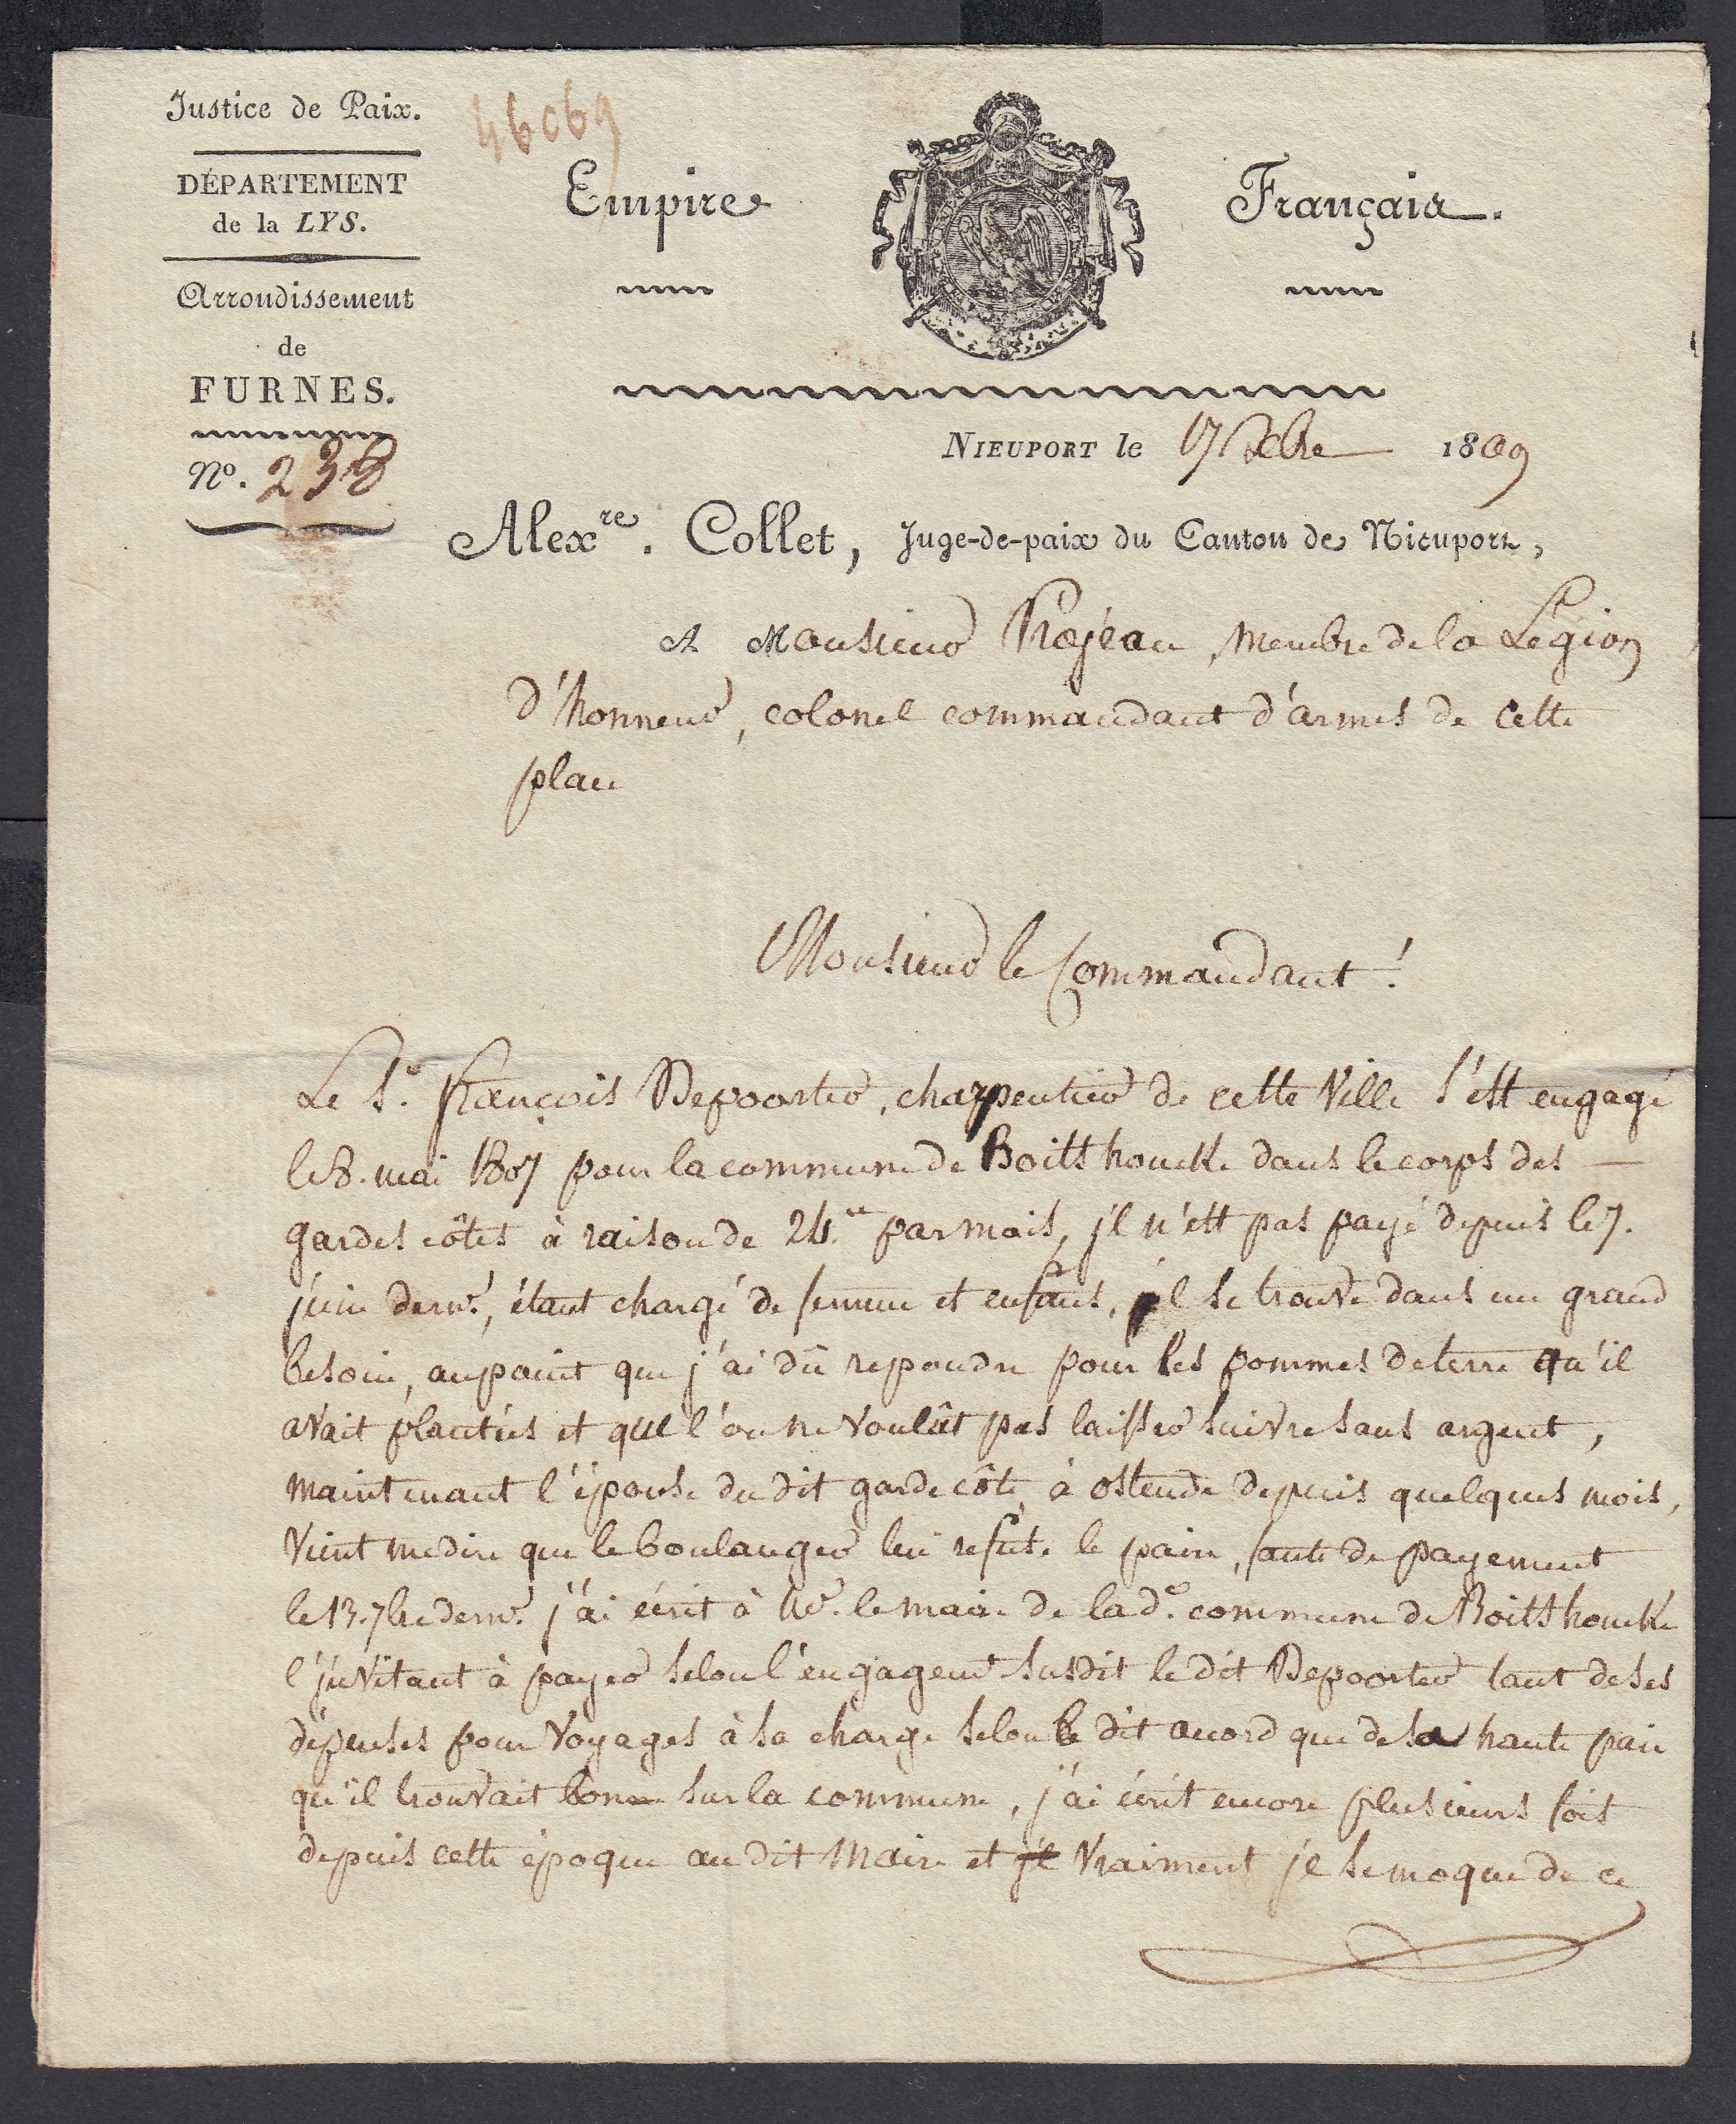 Justice de Paix.
DÉPARTEMENT
de la LYS.
Arrondissement
de
FURNES.
Nº. 238
46069
Empire Français.
NIEUPORT le 17 xbre 1809
Alexre. Collet, Juge-de-paix du Canton de Nieuport,
A Monsieur Prejean, Membre de la Légion
d'honneur, colonel commandant d'armes de cette
place
Monsieur le Commandant!
Le Sr. François Depoorter, charpentier de cette Ville s'est engagé
le 8. mai 1807 pour la commune de Boitshoucke dans le corps des
gardes côtes à raison de 24 par mois, jl n'est pas payé depuis le 7.
juin dernr., étant chargé de femme et enfans, jl se trouve dans un grand
besoin, au point que j'ai dû repondre pour les pommes de terre qu'il
avait plantées et que l'on ne voulût pas laisser suivre sans argent,
maintenant l'épouse du dit garde côte, à ostende depuis quelques mois,
vient me dire que le boulanger lui refuse le pain, faute de payement
le 13. 7bre dernr. j'ai écrit à Mr. le maire de la de. commune de Boitshoucke
l'jnvitant à payer selon l'engagemt susdit le dit Depoorter tant de ses
dépenses pour voyages à sa charge selon le dit accord que de sa haute paie
qu'il trouvait bon sur la commune, j'ai écrit encore plusieurs fois
depuis cette époque au dit Maire et jl vraiment jl se moque de ce